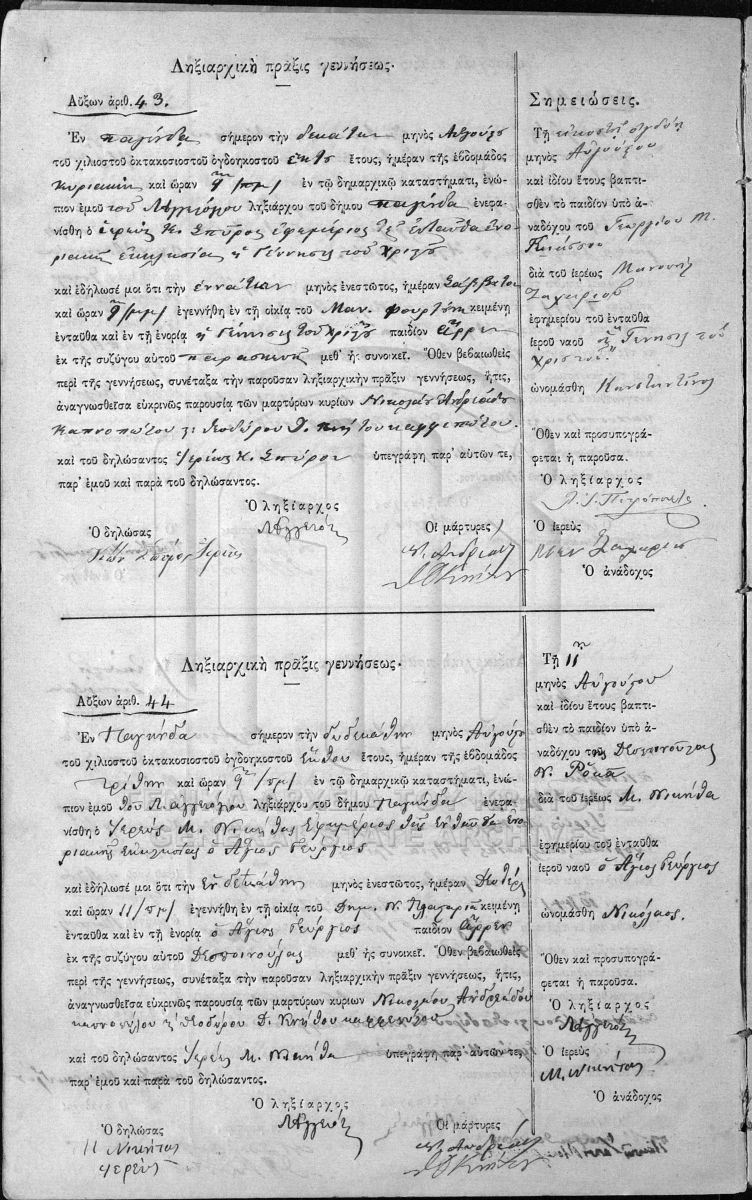 Ληξιαρχικὴ πρᾶξις γεννήσεως.
Αὔξων ἀριθ. 43.
Ἐν σήμερον τὴν δεκάτην μηνὸς Αὐγούστου
τοῦ χιλιοστοῦ ὀκτακοσιοστοῦ ὀγδοηκοστοῦ ἕκτου ἔτους, ἡμέραν τῆς ἑβδομάδος
Κυριακὴν καὶ ὥραν 9 /πμ/ ἐν τῷ δημαρχικῷ καταστήματι, ἐνώ-
πιον ἐμοῦ τοῦ ληξιάρχου τοῦ δήμου ἐνεφα-
νίσθη ὁ ἱερεὺς Κ. Σπῦρος ἐφημέριος τῆς ἐνταῦθα ἐνο-
ριακῆς ἐκκλησίας ἡ Γέννησις τοῦ Χριστοῦ
καὶ ἐδήλωσέ μοι ὅτι τὴν ἐννάτην μηνὸς ἐνεστῶτος, ἡμέραν Σάββατον
καὶ ὥραν ἐγεννήθη ἐν τῇ οἰκίᾳ τοῦ Μαν. κειμένῃ
ἐνταῦθα καὶ ἐν τῇ ἐνορίᾳ ἡ Γέννησις τοῦ Χριστοῦ παιδίον ἄρρεν
ἐκ τῆς συζύγου αὐτοῦ Παρασκευῆς μεθ' ἧς συνοικεῖ. Ὅθεν βεβαιωθεὶς
περὶ τῆς γεννήσεως, συνέταξα τὴν παροῦσαν ληξιαρχικὴν πρᾶξιν γεννήσεως, ἥτις,
ἀναγνωσθεῖσα εὐκρινῶς παρουσίᾳ τῶν μαρτύρων κυρίων Νικολάου
καὶ τοῦ δηλώσαντος Ἱερέως Κ. Σπύρου ὑπεγράφη παρ' αὐτῶν τε,
παρ' ἐμοῦ καὶ παρὰ τοῦ δηλώσαντος.
Ὁ ληξίαρχος
Ὁ δηλώσας
Οἱ μάρτυρες
Σημειώσεις.
Τῇ εἰκοστῇ
μηνὸς Αὐγούστου
καὶ ἰδίου ἔτους βαπτι-
σθὲν τὸ παιδίον ὑπὸ ἀ-
ναδόχου τοῦ Γεωργίου Μ.
διὰ τοῦ ἱερέως Μανουὴλ
Ζαχαρίου
ἐφημερίου τοῦ ἐνταῦθα
ἱεροῦ ναοῦ ἡ Γέννησις τοῦ
Χριστοῦ
ὠνομάσθη Κωνσταντῖνος
Ὅθεν καὶ προσυπογρά-
φεται ἡ παροῦσα.
Ὁ ληξίαρχος
Ὁ ἱερεὺς
Ὁ ἀνάδοχος
Ληξιαρχικὴ πρᾶξις γεννήσεως.
Αὔξων ἀριθ. 44
Ἐν σήμερον τὴν δωδεκάτην μηνὸς Αὐγούστου
τοῦ χιλιοστοῦ ὀκτακοσιοστοῦ ὀγδοηκοστοῦ ἕκτου ἔτους, ἡμέραν τῆς ἑβδομάδος
Τρίτην καὶ ὥραν 9 /πμ/ ἐν τῷ δημαρχικῷ καταστήματι, ἐνώ-
πιον ἐμοῦ τοῦ ληξιάρχου τοῦ δήμου ἐνεφα-
νίσθη ὁ Ἱερεὺς Μ. Νικήτας Ἐφημέριος τῆς ἐνταῦθα ἐνο-
ριακῆς ἐκκλησίας ὁ Ἅγιος Γεώργιος
καὶ ἐδήλωσέ μοι ὅτι τὴν ἑνδεκάτην μηνὸς ἐνεστῶτος, ἡμέραν Δευτέραν
καὶ ὥραν 11/πμ/ ἐγεννήθη ἐν τῇ οἰκίᾳ τοῦ Δημ. Ν. κειμένῃ
ἐνταῦθα καὶ ἐν τῇ ἐνορίᾳ ὁ Ἅγιος Γεώργιος παιδίον ἄρρεν
ἐκ τῆς συζύγου αὐτοῦ Δεσποινούλας μεθ' ἧς συνοικεῖ. Ὅθεν βεβαιωθεὶς
περὶ τῆς γεννήσεως, συνέταξα τὴν παροῦσαν ληξιαρχικὴν πρᾶξιν γεννήσεως, ἥτις,
ἀναγνωσθεῖσα εὐκρινῶς παρουσίᾳ τῶν μαρτύρων κυρίων Νικολάου
καὶ τοῦ δηλώσαντος Ἱερέως Μ. Νικήτα ὑπεγράφη παρ' αὐτῶν τε,
παρ' ἐμοῦ καὶ παρὰ τοῦ δηλώσαντος.
Ὁ ληξίαρχος
Ὁ δηλώσας
Νικήτας
ἱερεὺς
Οἱ μάρτυρες
Τῇ 11
μηνὸς Αὐγούστου
καὶ ἰδίου ἔτους βαπτι-
σθὲν τὸ παιδίον ὑπὸ ἀ-
ναδόχου Δεσποινούλας
Ν. Ρόκα
διὰ τοῦ ἱερέως Μ. Νικήτα
ἐφημερίου τοῦ ἐνταῦθα
ἱεροῦ ναοῦ ὁ Ἅγιος Γεώργιος
ὠνομάσθη Νικόλαος.
Ὅθεν καὶ προσυπογρά-
φεται ἡ παροῦσα.
Ὁ ληξίαρχος
Ὁ ἱερεὺς
Μ. Νικήτας
Ὁ ἀνάδοχος